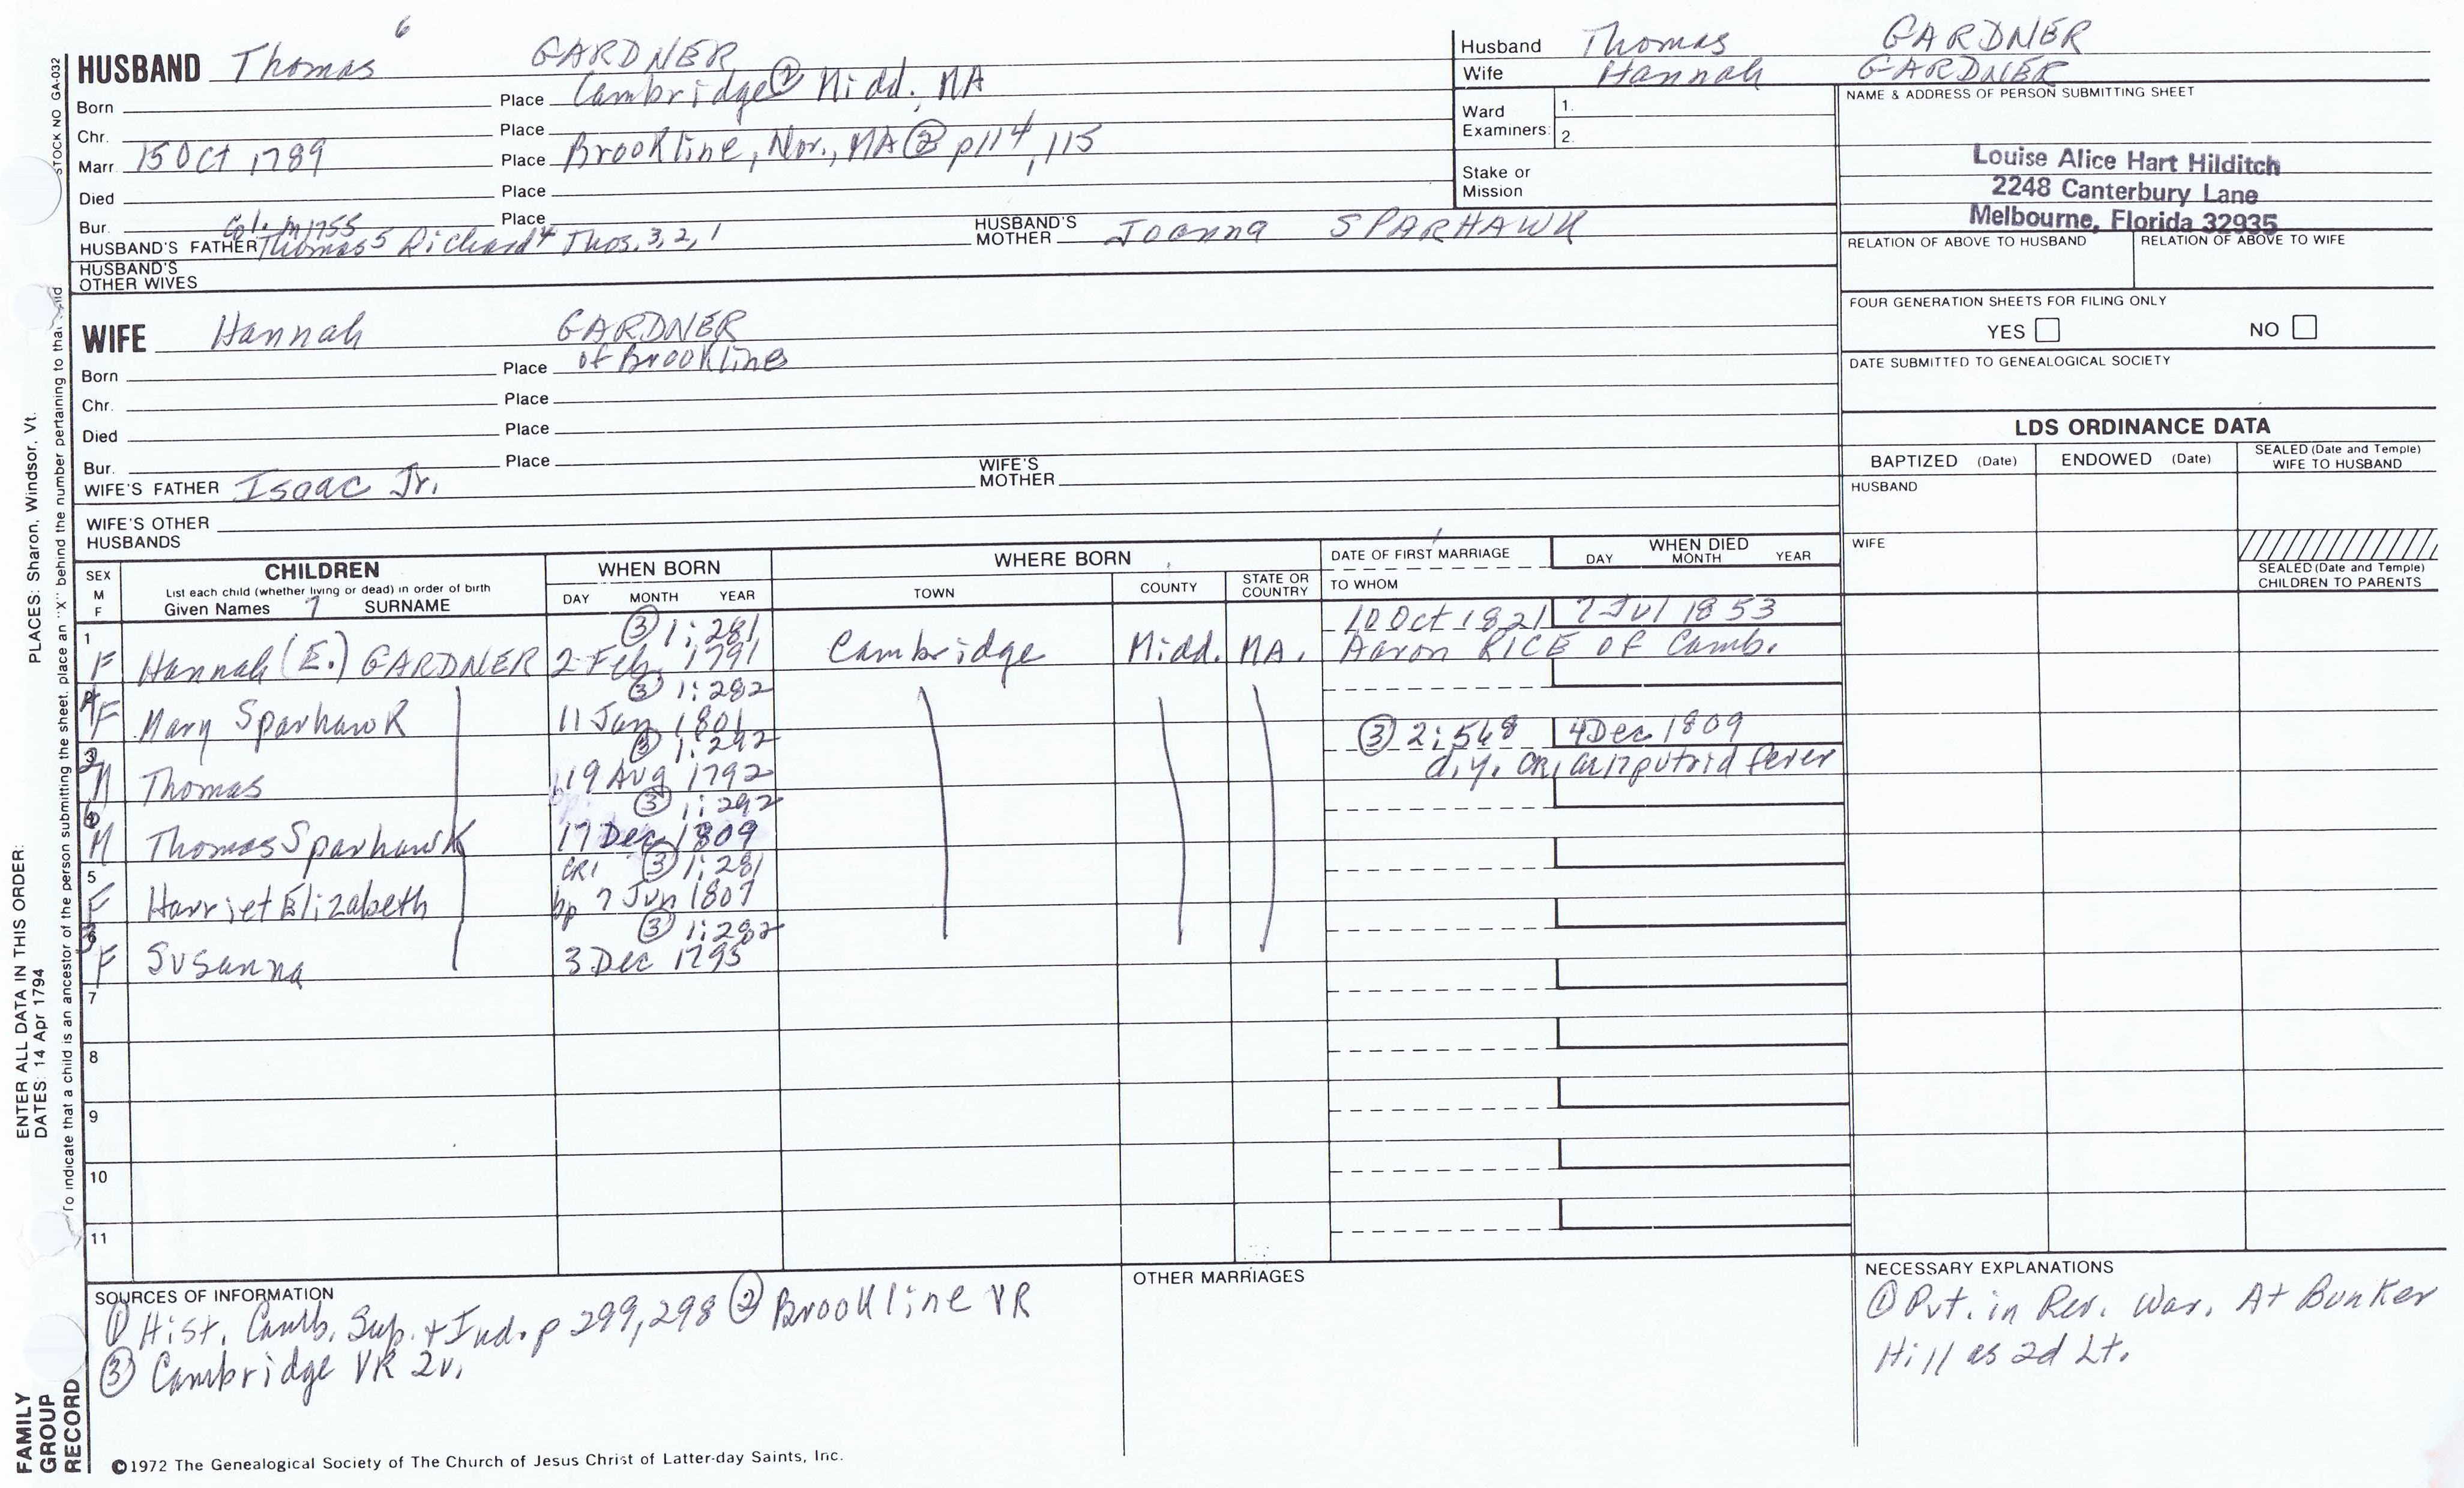 HUSBAND Thomas 6 GARDNER
Born Place Cambridge Midd. MA
Chr. Place
Marr. 15 Oct 1789 Place Brookline, Nor., MA ② p114, 115
Died Place
Bur. Place
Col. m 1755
HUSBAND'S FATHER Thomas 5 Richard 4 Thos. 3, 2, 1 HUSBAND'S MOTHER Joanna SPARHAWK
HUSBAND'S OTHER WIVES
WIFE Hannah GARDNER
Born Place of Brookline
Chr. Place
Died Place
Bur. Place
WIFE'S FATHER Isaac Jr. WIFE'S MOTHER
WIFE'S OTHER HUSBANDS
Husband Thomas GARDNER
Wife Hannah GARDNER
Ward Examiners: 1.
2.
Stake or Mission
NAME & ADDRESS OF PERSON SUBMITTING SHEET
Louise Alice Hart Hilditch
2248 Canterbury Lane
Melbourne, Florida 32935
RELATION OF ABOVE TO HUSBAND RELATION OF ABOVE TO WIFE
FOUR GENERATION SHEETS FOR FILING ONLY
YES NO
DATE SUBMITTED TO GENEALOGICAL SOCIETY
LDS ORDINANCE DATA
BAPTIZED (Date) ENDOWED (Date) SEALED (Date and Temple) WIFE TO HUSBAND
HUSBAND
WIFE
SEALED (Date and Temple) CHILDREN TO PARENTS
SEX M F
CHILDREN
List each child (whether living or dead) in order of birth
Given Names 7 SURNAME
WHEN BORN
DAY MONTH YEAR
WHERE BORN
TOWN COUNTY STATE OR COUNTRY
DATE OF FIRST MARRIAGE
TO WHOM
WHEN DIED
DAY MONTH YEAR
1 ③ 1:281 10 Oct 1821 7 Jul 1853
F Hannah (E.) GARDNER 2 Feb 1791 Cambridge Midd. MA. Aaron RICE of Camb.
③ 1:282
F Mary Sparhawk 11 Jan 1801
③ 1:292 ③ 2:548 4 Dec 1809
M Thomas 19 Aug 1792 d.y. CR1 putrid fever
③ 1:292
M Thomas Sparhawk 17 Dec 1809
5 CR1 ③ 1:281
F Harriet Elizabeth bp 7 Jun 1807
③ 1:282
F Susanna 3 Dec 1795
7
8
9
10
11
SOURCES OF INFORMATION
① Hist. Camb. Sup. + Ind. p 299, 298 ② Brookline VR
③ Cambridge VR 2v.
OTHER MARRIAGES
NECESSARY EXPLANATIONS
① Pvt. in Rev. War. At Bunker
Hill as 2d Lt.
©1972 The Genealogical Society of The Church of Jesus Christ of Latter-day Saints, Inc.
STOCK NO GA-032
To indicate that a child is an ancestor of the person submitting the sheet, place an "X" behind the number pertaining to that
PLACES: Sharon, Windsor, Vt.
ENTER ALL DATA IN THIS ORDER:
DATES: 14 Apr 1794
FAMILY GROUP RECORD